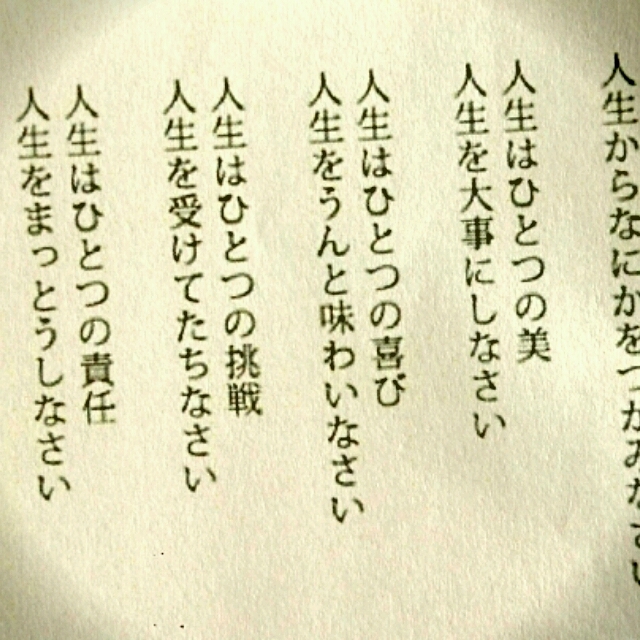 人生からなにかをつかみなさい
人生はひとつの美
人生を大事にしなさい
人生はひとつの喜び
人生をうんと味わいなさい
人生はひとつの挑戦
人生を受けてたちなさい
人生はひとつの責任
人生をまっとうしなさい